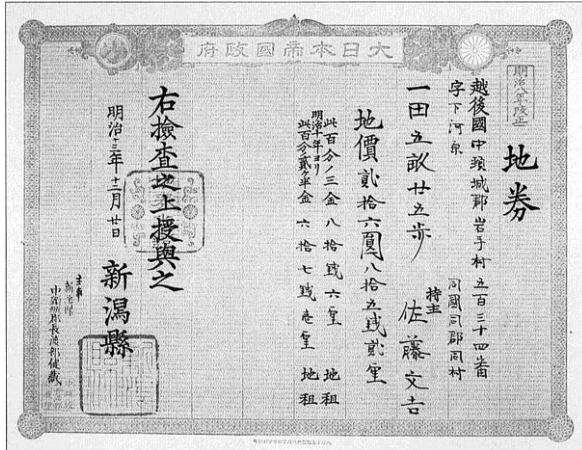 大日本帝國政府
明治八年改正
地券
越後國中頚城郡岩手村五百三十四番
字下河原
一田五畝廿五歩
同國同郡同村
持主 佐藤文吉
地價貳拾六圓八拾五銭貳厘
此百分ノ三金八拾銭六厘 地租
明治十年ヨリ
此百分貳ヶ半金六拾七銭壱厘 地租
右檢査之上授與之
明治十三年十二月廿日
新潟縣
主事